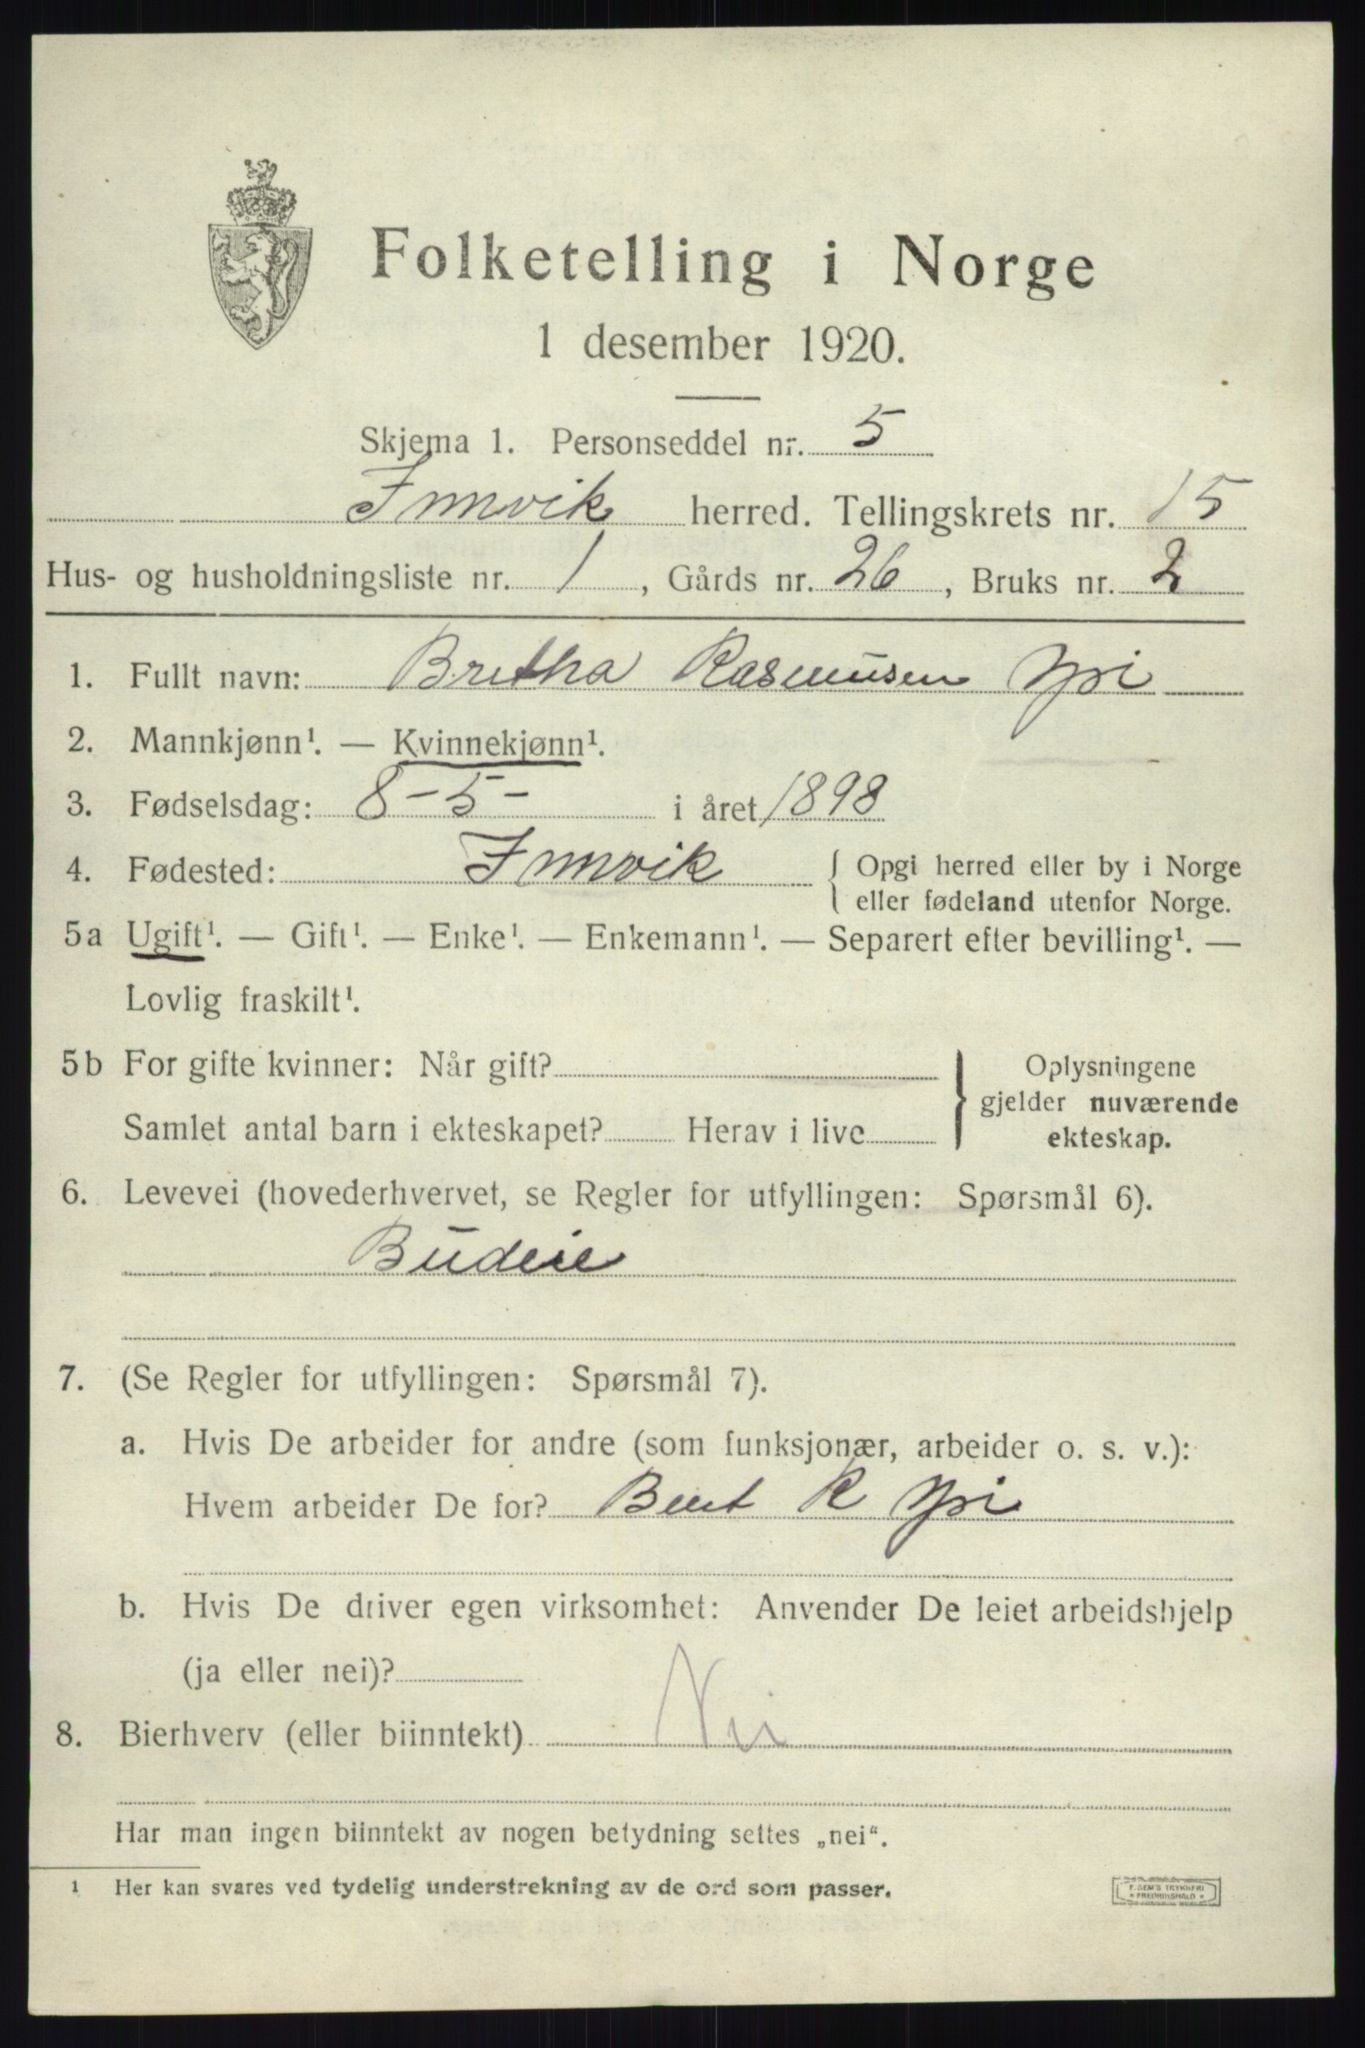 Folketelling i Norge
1 desember 1920.
Skjema 1. Personseddel nr. 5
Innvik herred. Tellingskrets nr. 15
Hus- og husholdningsliste nr. 1, Gårds nr. 26, Bruks nr. 2
1. Fullt navn: Bretha Rasmusen Yri
2. Mannkjønn¹. — Kvinnekjønn¹.
3. Fødselsdag: 8-5- i året 1898
4. Fødested: Innvik { Opgi herred eller by i Norge
eller fødeland utenfor Norge.
5a Ugift¹. — Gift¹. — Enke¹. — Enkemann¹. — Separert efter bevilling¹. —
Lovlig fraskilt¹.
5b For gifte kvinner: Når gift?
Samlet antal barn i ekteskapet? Herav i live
} Oplysningene
gjelder nuværende
ekteskap.
6. Levevei (hovederhvervet, se Regler for utfyllingen: Spørsmål 6).
Budeie
7. (Se Regler for utfyllingen: Spørsmål 7).
a. Hvis De arbeider for andre (som funksjonær, arbeider o. s. v.):
Hvem arbeider De for? Bent R Yri
b. Hvis De driver egen virksomhet: Anvender De leiet arbeidshjelp
(ja eller nei)?
8. Bierhverv (eller biinntekt) Nei
Har man ingen biinntekt av nogen betydning settes „nei“.
¹ Her kan svares ved tydelig understrekning av de ord som passer.
F. SEM'S TRYKKERI
* FREDRIKSHALD *